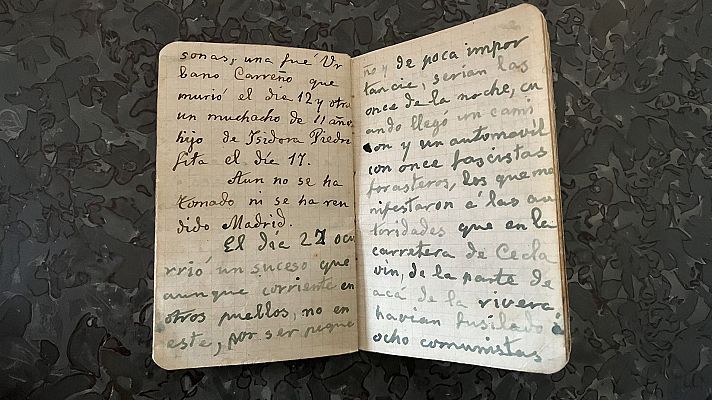 sonas, una fué Ur
bano Carreño que
murió el día 12 y otra
un muchacho de 11 años
hijo de Isidora Piedra
fita el día 17.
Aun no se ha
tomado ni se ha ren
dido Madrid.
El día 27 ocu
rrió un suceso que
aunque corriente en
otros pueblos, no en
este, por ser peque
ño y de poca impor
tancia, serían las
once de la noche, cu
ando llegó un cami
on y un automavil
con once fascistas
forasteros, los que ma
nifestaron a las au
toridades que en la
carretera de Cecla
vin, de la parte de
acá de la rivera
havian fusilado a
ocho comunistas